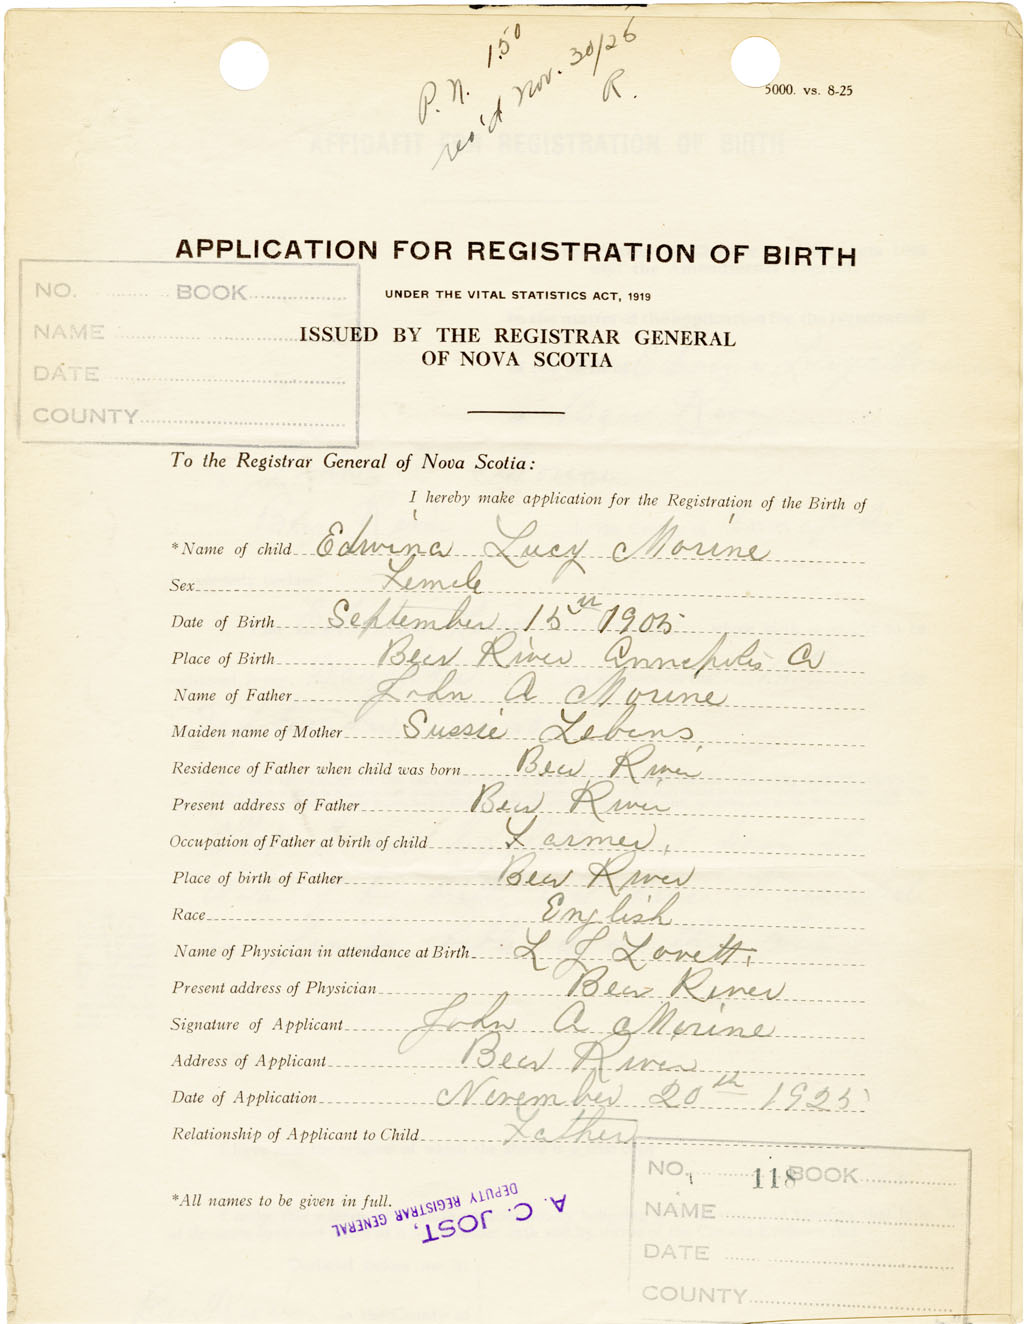 P.N. 1.50
rec'd Nov. 30/26
R.
5000. vs. 8-25
APPLICATION FOR REGISTRATION OF BIRTH
UNDER THE VITAL STATISTICS ACT, 1919
ISSUED BY THE REGISTRAR GENERAL
OF NOVA SCOTIA
NO. BOOK
NAME
DATE
COUNTY
To the Registrar General of Nova Scotia:
I hereby make application for the Registration of the Birth of
*Name of child Edwina Lucy Morine
Sex Female
Date of Birth September 15th 1905
Place of Birth Bear River Annapolis Co
Name of Father John A Morine
Maiden name of Mother Sussie
Residence of Father when child was born Bear River
Present address of Father Bear River
Occupation of Father at birth of child Farmer,
Place of birth of Father Bear River
Race English
Name of Physician in attendance at Birth L J Lovett,
Present address of Physician Bear River
Signature of Applicant John A Morine
Address of Applicant Bear River
Date of Application November 20th 1925
Relationship of Applicant to Child Father
*All names to be given in full.
A. C. JOST,
DEPUTY REGISTRAR GENERAL
NO. 118 BOOK
NAME
DATE
COUNTY